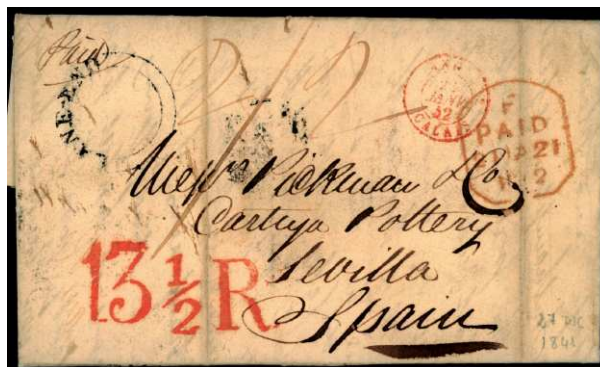 Paid
LANE-END
CALAIS
F
PAID
21
Messrs Pickman & Co
Cartuja Pottery
Sevilla
Spain
13 1/2 R
27 DIC
184